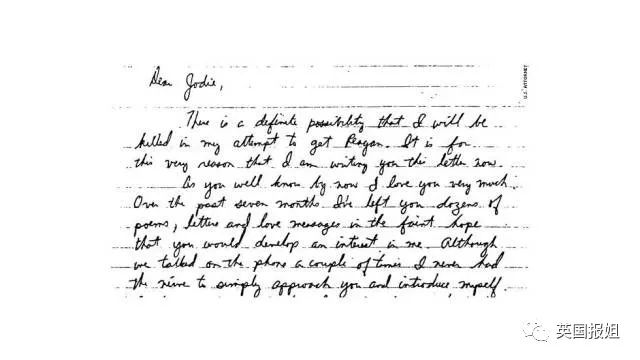 Dear Jodie,
There is a definite possibility that I will be
killed in my attempt to get Reagan. It is for
this very reason that I am writing you this letter now.
As you well know by now I love you very much.
Over the past seven months I've left you dozens of
poems, letters and love messages in the faint hope
that you would develop an interest in me. Although
we talked on the phone a couple of times I never had
the nerve to simply approach you and introduce myself.
英国报姐